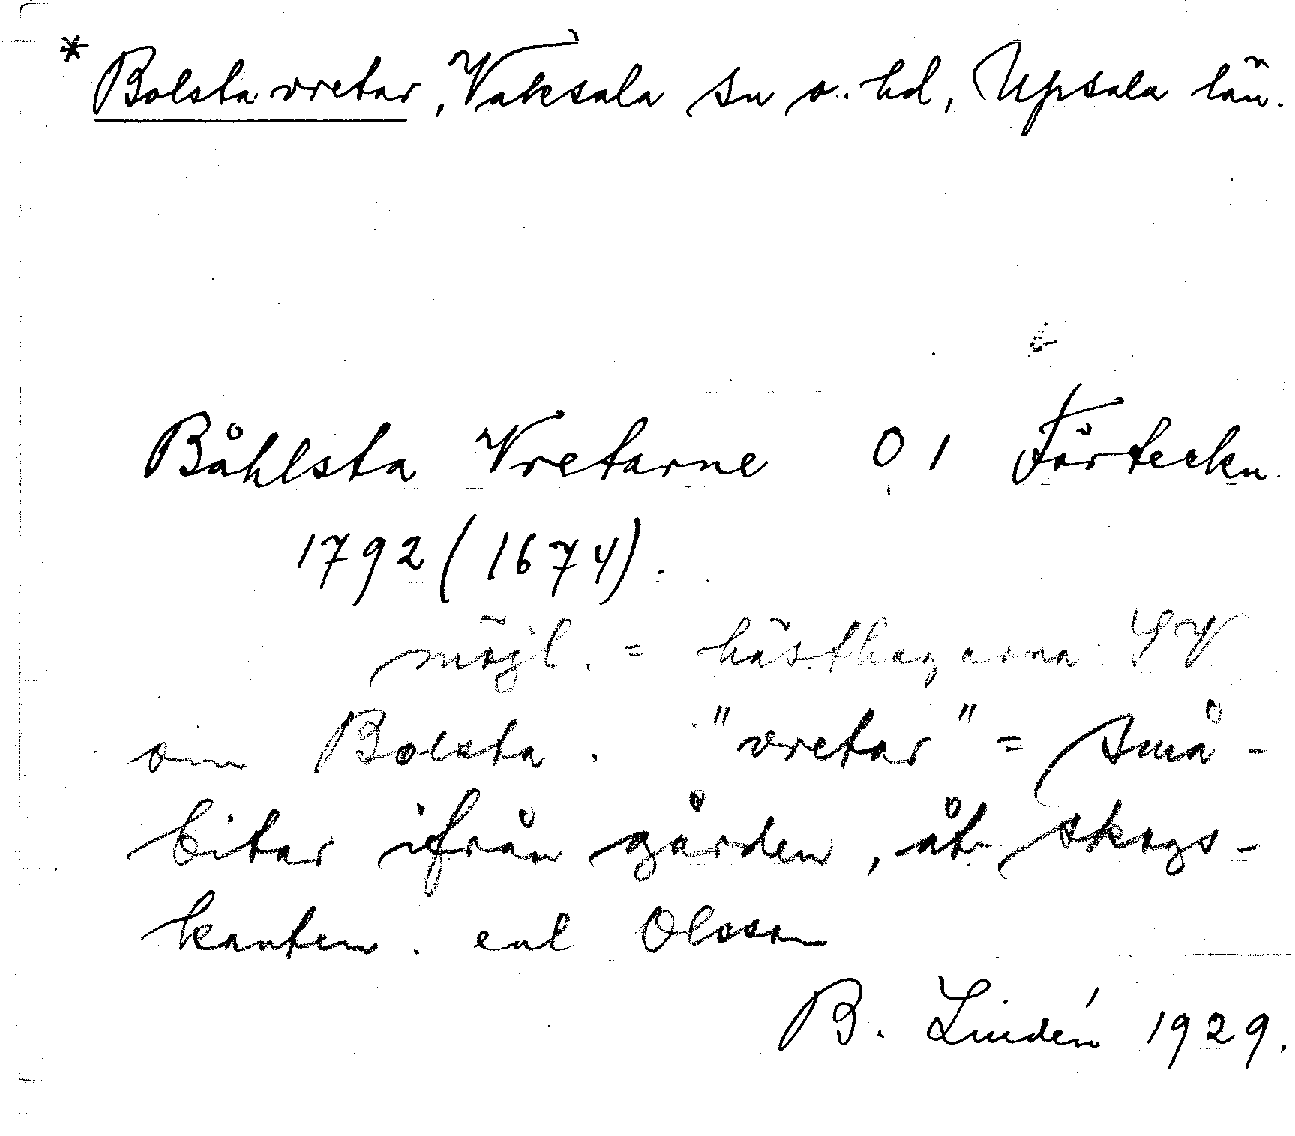 * Bolsta vretar, Vaksala sn o. hd, Upsala län.
Båhlsta Vretarne 0 1 Förteckn.
1792 (1674).
möjl. = hästhagarna SV
om Bolsta. "vretar" = små-
bitar ifrån gården, åt skogs-
kanten. enl Olsson
B. Lindén 1929.